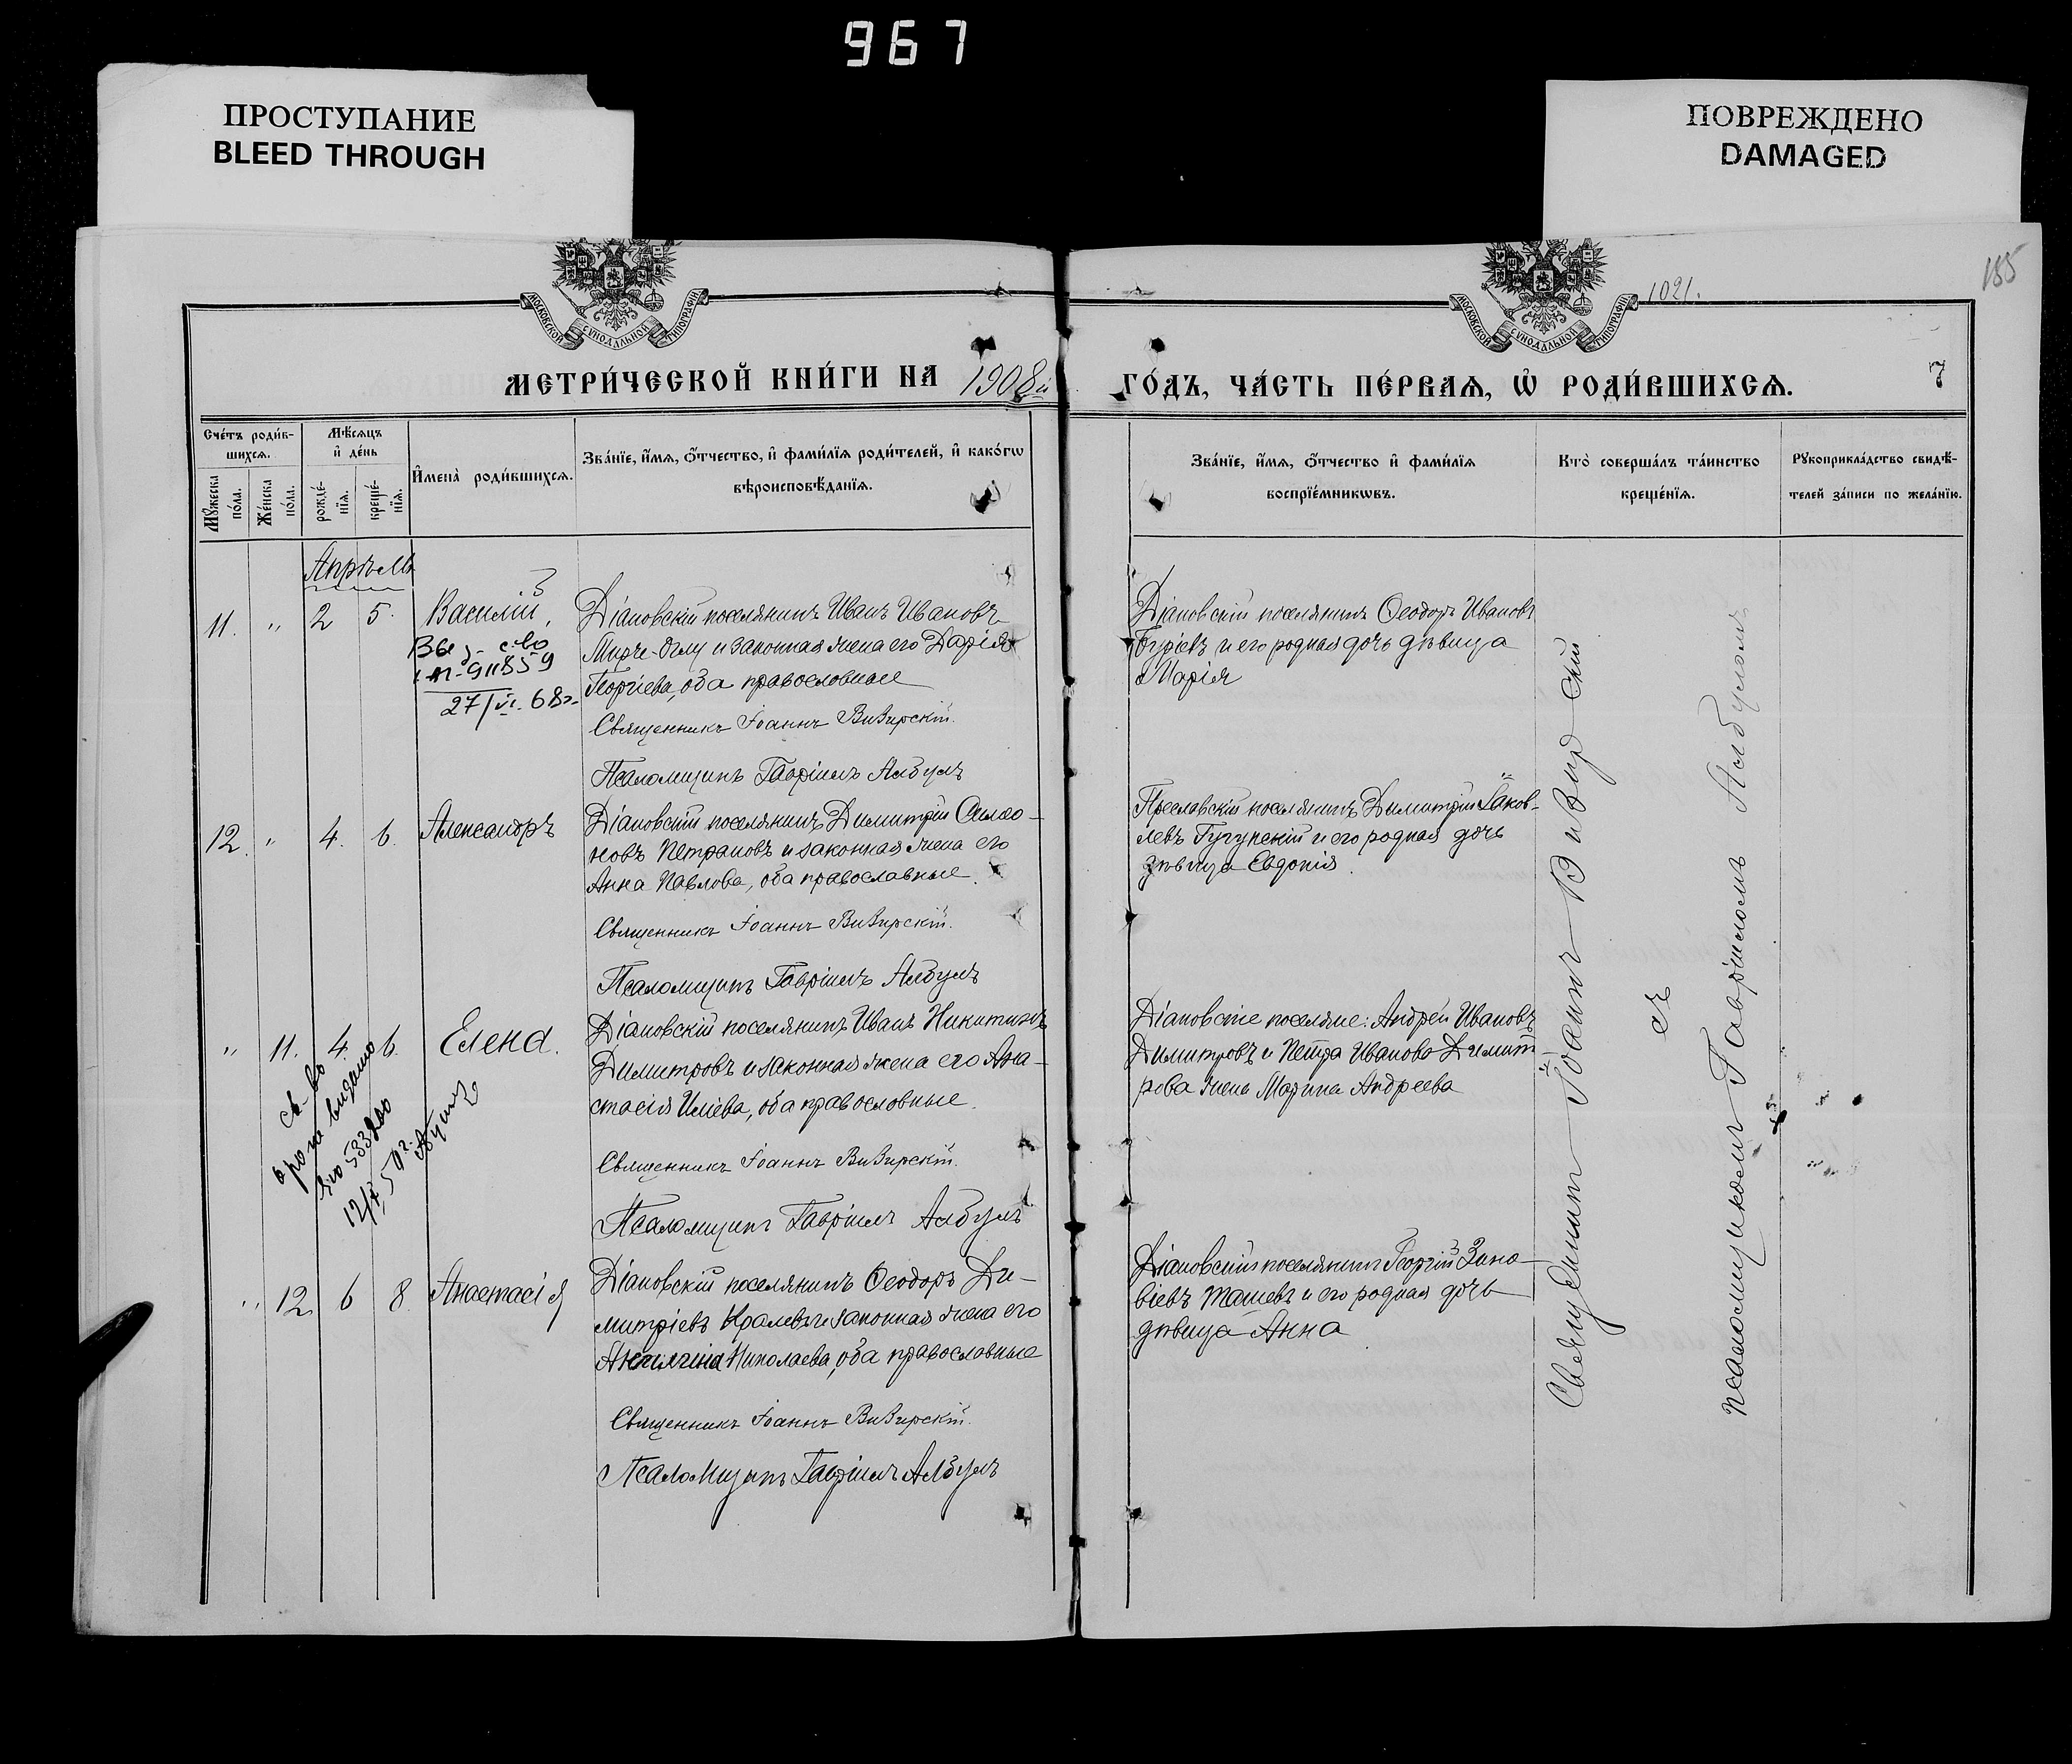 967
ПРОСТУПАНИЕ
BLEED THROUGH
ПОВРЕЖДЕНО
DAMAGED
МОСКОВСКОЙ СУНОДАЛЬНОЙ ТИПОГРАФІИ
МОСКОВСКОЙ СУНОДАЛЬНОЙ ТИПОГРАФІИ
1021.
155
МЕТРИ́ЧЕСКОЙ КНИ́ГИ НА 1908й
ГО́ДЪ, ЧА́СТЬ ПЕ́РВАѦ, Ѡ҆ РОДИ́ВШИХСѦ.
7
Сче́тъ роди́в-
шихсѧ.
Мꙋ́жеска по́ла.
Же́нска по́ла.
Мѣ́сѧцъ
и҆ де́нь
рожде́-
нїѧ.
креще́-
нїѧ.
И҆мена̀ роди́вшихсѧ.
Зва́нїе, и҆́мѧ, ѻ҆́тчество, и҆ фами́лїѧ роди́телей, и҆ како́гѡ
вѣроисповѣ́данїѧ.
Зва́нїе, и҆́мѧ, ѻ҆́тчество и҆ фами́лїѧ
воспрїе́мникѡвъ.
Кто̀ соверша́лъ та́инство
креще́нїѧ.
Рꙋкоприкла́дство свидѣ́-
телей за́писи по жела́нїю.
Апрѣль
11. " 2 5. Василій,
27/VI. 68г.
Діановскій поселянинъ Иванъ Ивановъ
и законная жена его Дарія
Георгіева, оба православные
Священникъ Іоаннъ Визирскій.
Псаломщикъ Гавріилъ Албулъ
Діановскій поселянинъ Ѳеодоръ Ивановъ
и его родная дочь дѣвица
Марія
12. " 4. 6. Александръ
Діановскій поселянинъ Димитрій
новъ Петрановъ и законная жена его
Анна Павлова, оба православные.
Священникъ Іоаннъ Визирскій.
Псаломщикъ Гавріилъ Албулъ
Преславскій поселянинъ Димитрій Іаков-
левъ и его родная дочь
дѣвица Евдокія.
" 11. 4. 6. Елена.
св-во
о рожд выдано
12/X 50г.
Діановскій поселянинъ Иванъ Никитинъ
Димитровъ и законная жена его Ана-
стасія Иліева, оба православные.
Священникъ Іоаннъ Визирскій.
Псаломщикъ Гавріилъ Албулъ
Діановскіе поселяне: Андрей Ивановъ
Димитровъ и Петра Иванова Димит
рова жена Марина Андреева
" 12 6 8. Анастасія
Діановскій поселянинъ Ѳеодоръ Ди-
митріевъ Кралевъ и законная жена его
Николаева, оба православные
Священникъ Іоаннъ Визирскій.
Псаломщикъ Гавріилъ Албулъ
Діановскій поселянинъ Георгій Зино-
віевъ Ташевъ и его родная дочь
дѣвица Анна
Священникъ Іоаннъ Визирскій
съ
псаломщикомъ Гавріиломъ Албуломъ